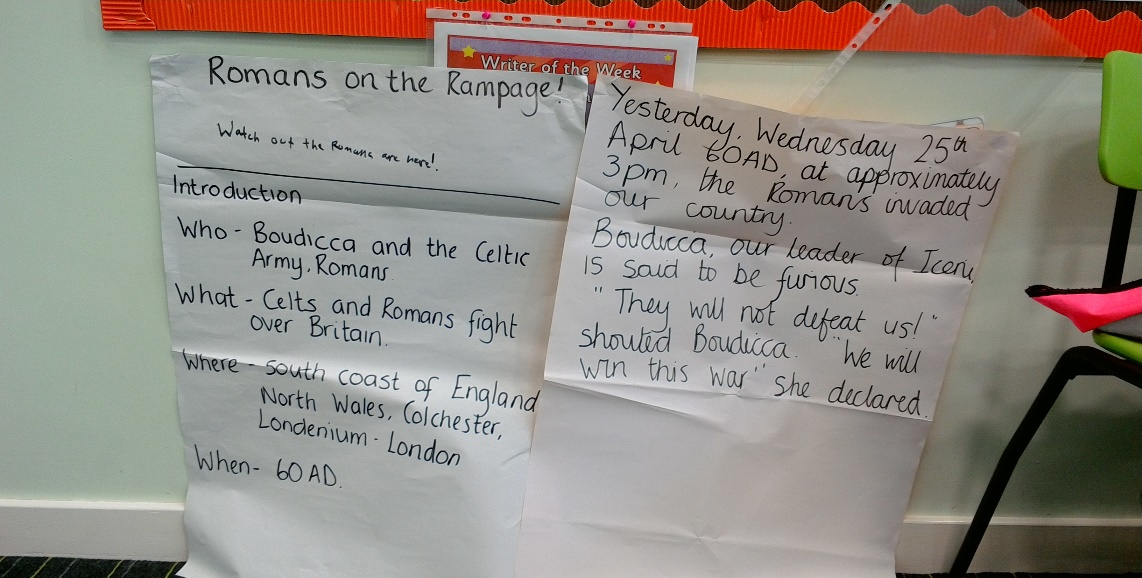 Writer of the Week
Romans on the Rampage!
Watch out the Romans are here!
Introduction
Who - Boudicca and the Celtic
Army. Romans.
What - Celts and Romans fight
over Britain.
Where - South coast of England
North Wales, Colchester,
Londenium - London
When - 60 AD.
Yesterday, Wednesday 25th
April 60AD, at approximately
3pm, the Romans invaded
our country.
Boudicca, our leader of Iceni,
is said to be furious.
"They will not defeat us!"
shouted Boudicca. "We will
win this war" she declared.